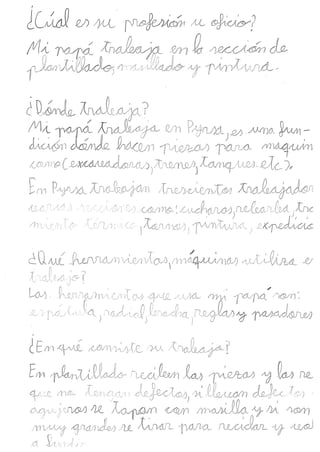 ¿Cúal es su profesión u oficio?
Mi papá trabaja en la sección de
plantillado, masillado y pintura.
¿Dónde trabaja?
Mi papá trabaja en Pyrsa, es una fun-
dición dónde hacen piezas para maquin
como (excavadoras, trenes, tanques etc).
En Pyrsa trabajan trescientos trabajador
varias secciones como: cucharas, rebarba, tra
miento térmico, tornos, pintura, expedicio
¿Qué herramientas, máquinas utiliza e
trabajo?
Las herramientas que usa mi papá son:
espátula, radial, brocha, reglas y pasadores
¿En qué consiste su trabajo?
En plantillado reciben las piezas y las re
que no tengan defectos, si llevan defectos
agujeros se tapan con masilla y si son
muy grandes se tiran para reciclar y
a fundir